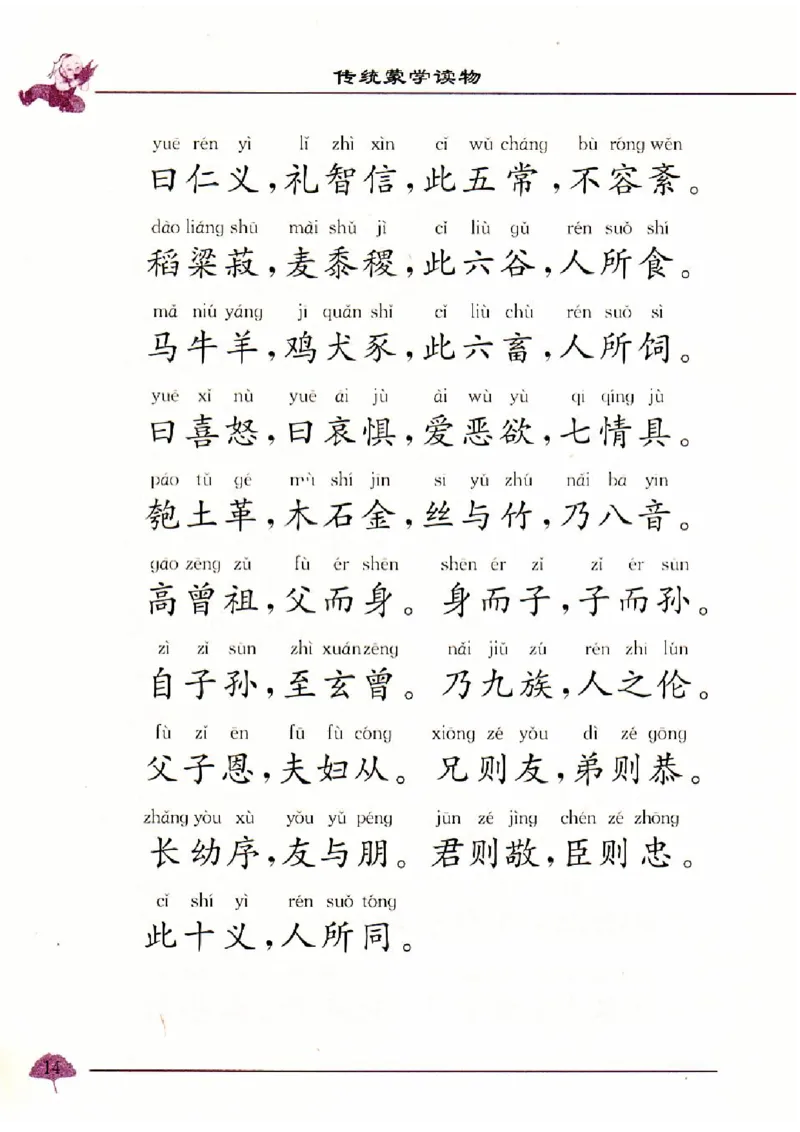 传统蒙学读物
yuē rén yì lǐ zhì xìn cǐ wǔ cháng bù róng wěn
曰仁义，礼智信，此五常，不容紊。
dào liáng shū mài shǔ jì cǐ liù gǔ rén suǒ shí
稻粱菽，麦黍稷，此六谷，人所食。
mǎ niú yáng jī quǎn shǐ cǐ liù chù rén suǒ sì
马牛羊，鸡犬豕，此六畜，人所饲。
yuē xǐ nù yuē āi jù ài wù yù qī qíng jù
曰喜怒，曰哀惧，爱恶欲，七情具。
páo tǔ gé mù shí jīn sī yǔ zhú nǎi bā yīn
匏土革，木石金，丝与竹，乃八音。
gāo zēng zǔ fù ér shēn shēn ér zǐ zǐ ér sūn
高曾祖，父而身。身而子，子而孙。
zì zǐ sūn zhì xuán zēng nǎi jiǔ zú rén zhī lún
自子孙，至玄曾。乃九族，人之伦。
fù zǐ ēn fū fù cóng xiōng zé yǒu dì zé gōng
父子恩，夫妇从。兄则友，弟则恭。
zhǎng yòu xù yǒu yǔ péng jūn zé jìng chén zé zhōng
长幼序，友与朋。君则敬，臣则忠。
cǐ shí yì rén suǒ tóng
此十义，人所同。
14